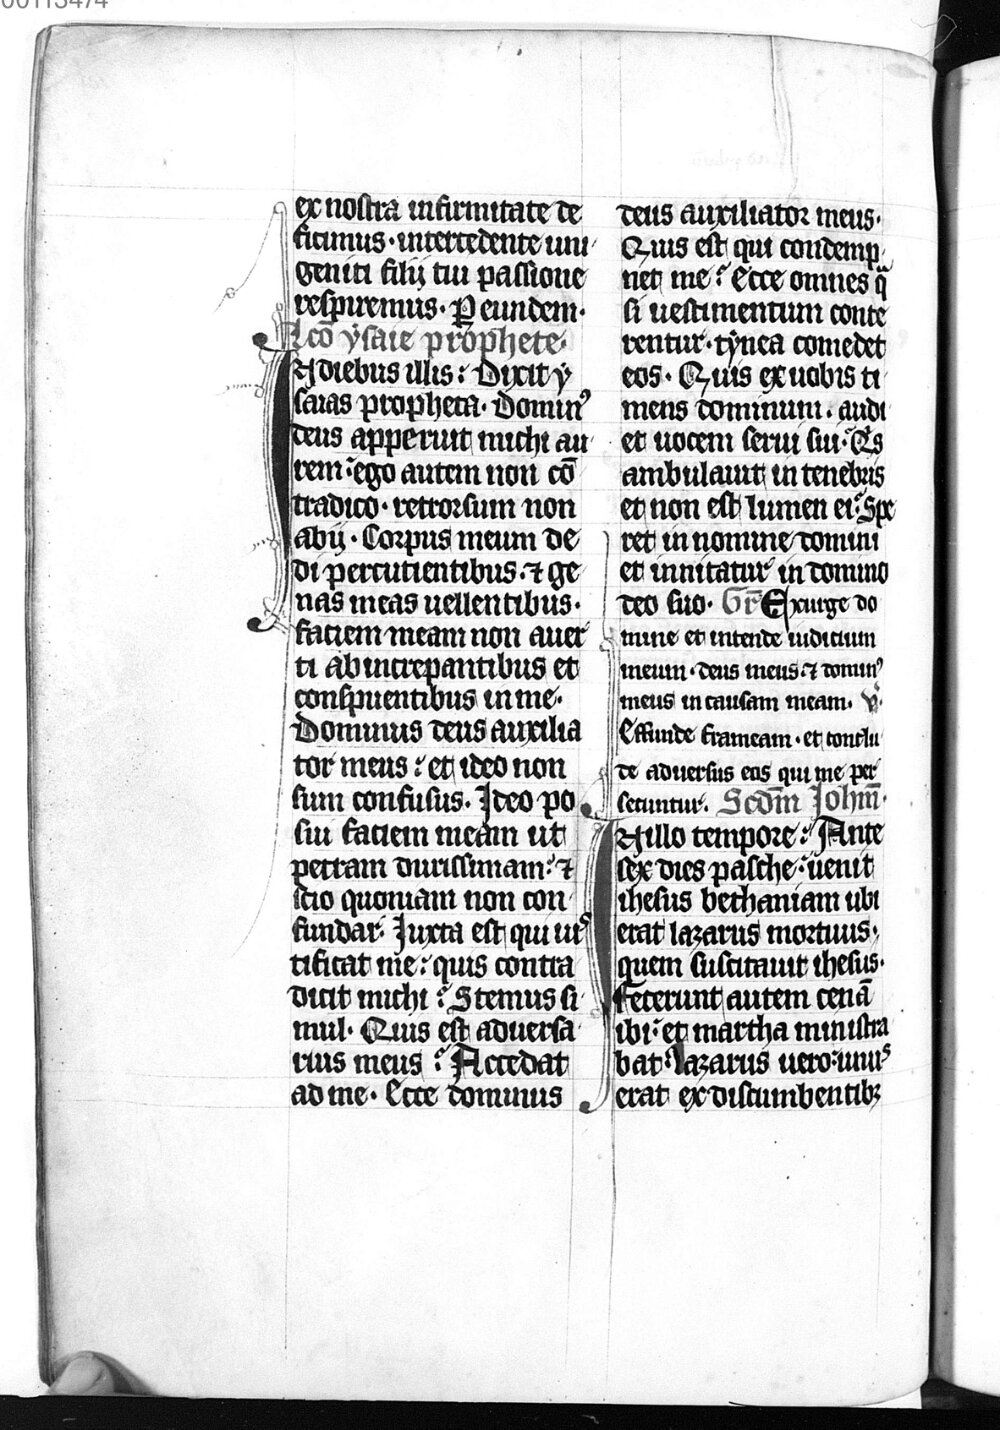 00113474
ex nostra infirmitate de
ficimus · intercedente uni
geniti filij tui passione
respiremus · P eundem ·
Lc̄o ysaie prophete ·
In diebus illis : Dixit y
saias propheta · Dominꝰ
deus apperuit michi au
rem : ego autem non cō
tradico · retrorsum non
abij · Corpus meum de
di percutientibus · ⁊ ge
nas meas uellentibus ·
faciem meam non auer
ti ab increpantibus et
conspuentibus in me ·
Dominus deus auxilia
tor meus : et ideo non
sum confusus · Ideo po
sui faciem meam ut
petram durissimam : ⁊
scio quoniam non con
fundar · Iuxta est qui iusꝰ
tificat me : quis contra
dicit michi : Stemus si
mul · Quis est aduersa
rius meus : Accedat
ad me · Ecce dominus
deus auxiliator meus ·
Quis est qui condemp
net me : Ecce omnes q̄
si uestimentum conte
rentur · tynea comedet
eos · Quis ex uobis ti
mens dominum · audi
et uocem serui sui : Qs
ambulauit in tenebris
et non est lumen ei : Spe
ret in nomine domini
et innitatur in domino
deo suo · Gr̄ Exurge do
mine et intende iudicium
meum · deus meus · ⁊ dominꝰ
meus in causam meam · V̄ ·
Effunde frameam · et conclu
de aduersus eos qui me per
secuntur · Scd̄m Joh̄m ·
In illo tempore : Ante
sex dies pasche : uenit
ihesus bethaniam ubi
erat lazarus mortuus ·
quem suscitauit ihesus ·
Fecerunt autem cenā
ibi : et martha ministra
bat : lazarus uero : unuꝰ
erat ex discumbentibꝫ